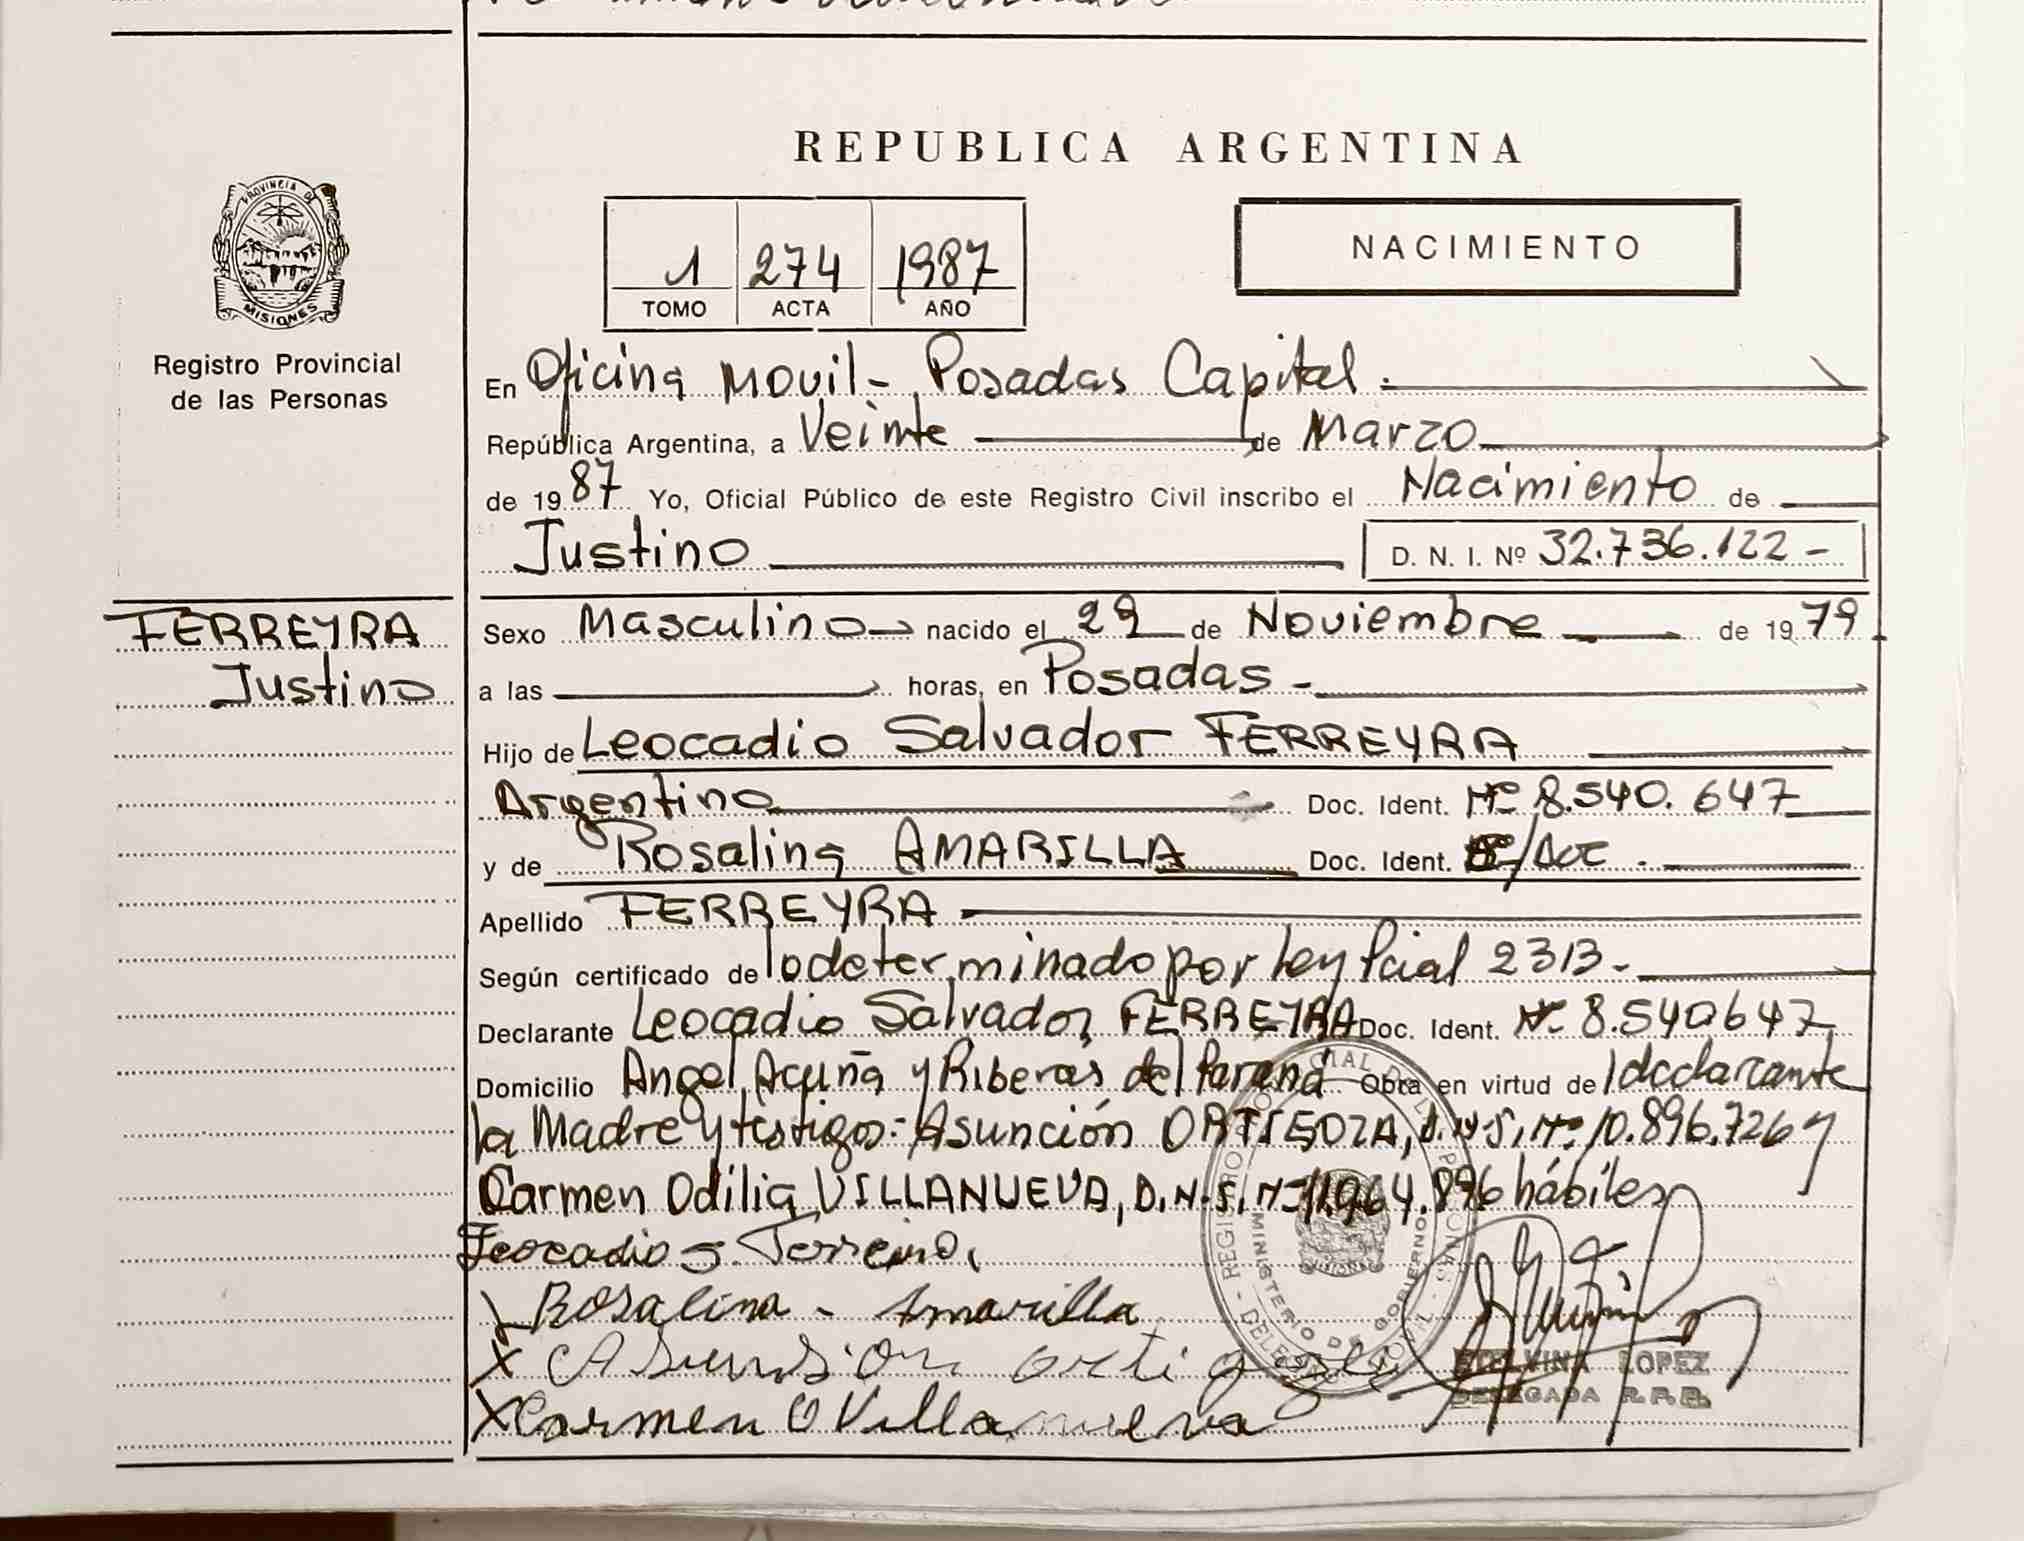 REPUBLICA ARGENTINA
PROVINCIA DE
MISIONES
Registro Provincial
de las Personas
1 274 1987
TOMO ACTA AÑO
NACIMIENTO
En Oficina Movil - Posadas Capital.
República Argentina, a Veinte de Marzo
de 1987 Yo, Oficial Público de este Registro Civil inscribo el Nacimiento de
Justino D. N. I. Nº 32.736.122 -
FERREYRA
Justino
Sexo Masculino nacido el 29 de Noviembre de 1979
a las horas, en Posadas -
Hijo de Leocadio Salvador FERREYRA
Argentino Doc. Ident. Nº 8.540.647
y de Rosalina AMARILLA Doc. Ident. S/Doc.
Apellido FERREYRA
Según certificado de lo determinado por Ley Pcial 2313 -
Declarante Leocadio Salvador FERREYRA Doc. Ident. Nº 8.540647
Domicilio Angel Acuña y Riberas del Paraná Obra en virtud de l declarante
la Madre y testigos: Asunción ORTIGOZA, D.N.I, Nº 10.896.726 y
Carmen Odilia VILLANUEVA, D.N.I, Nº 11.964.896 hábiles
Leocadio S. Ferreira
Rosalina - Amarilla
X Asunsion
X Carmen O Villanueva
REGISTRO PROVINCIAL DE LAS PERSONAS
MINISTERIO DE GOBIERNO
LOPEZ
DELEGADA R.P.P.